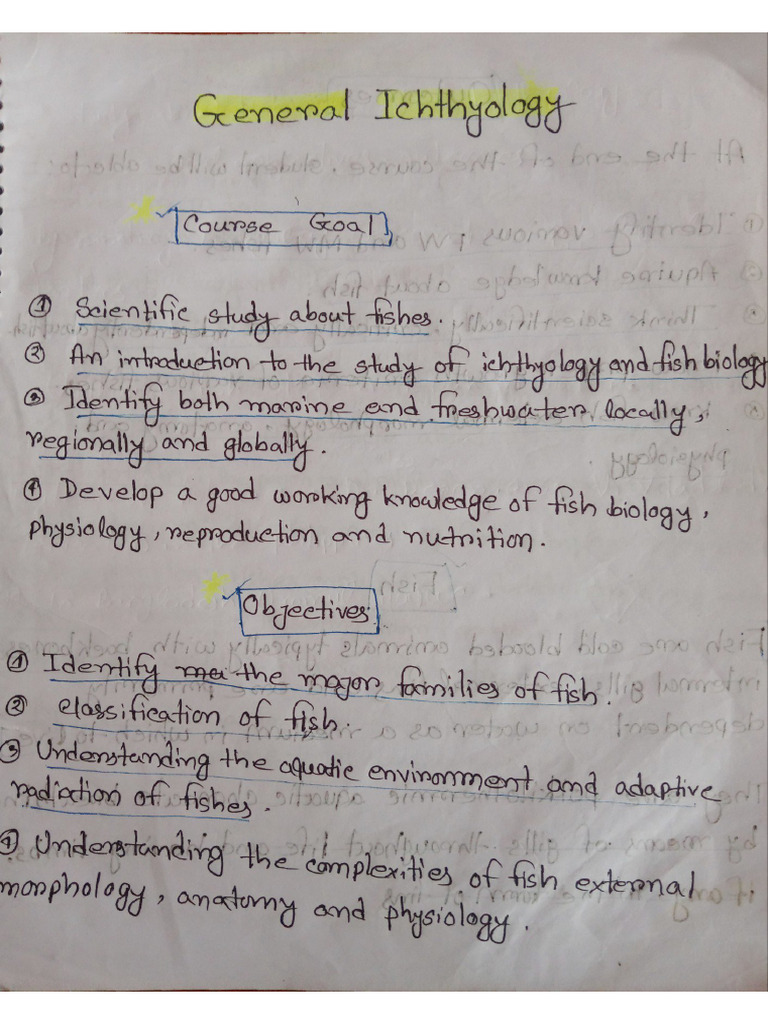 General Ichthyology
Course Goal
① Scientific study about fishes.
② An introduction to the study of ichthyology and fish biology
③ Identify both marine and freshwater, locally,
regionally and globally.
④ Develop a good working knowledge of fish biology,
physiology, reproduction and nutrition.
Objectives
① Identify the major families of fish.
② classification of fish.
③ Understanding the aquatic environment and adaptive
radiation of fishes.
④ Understanding the complexities of fish external
morphology, anatomy and physiology.